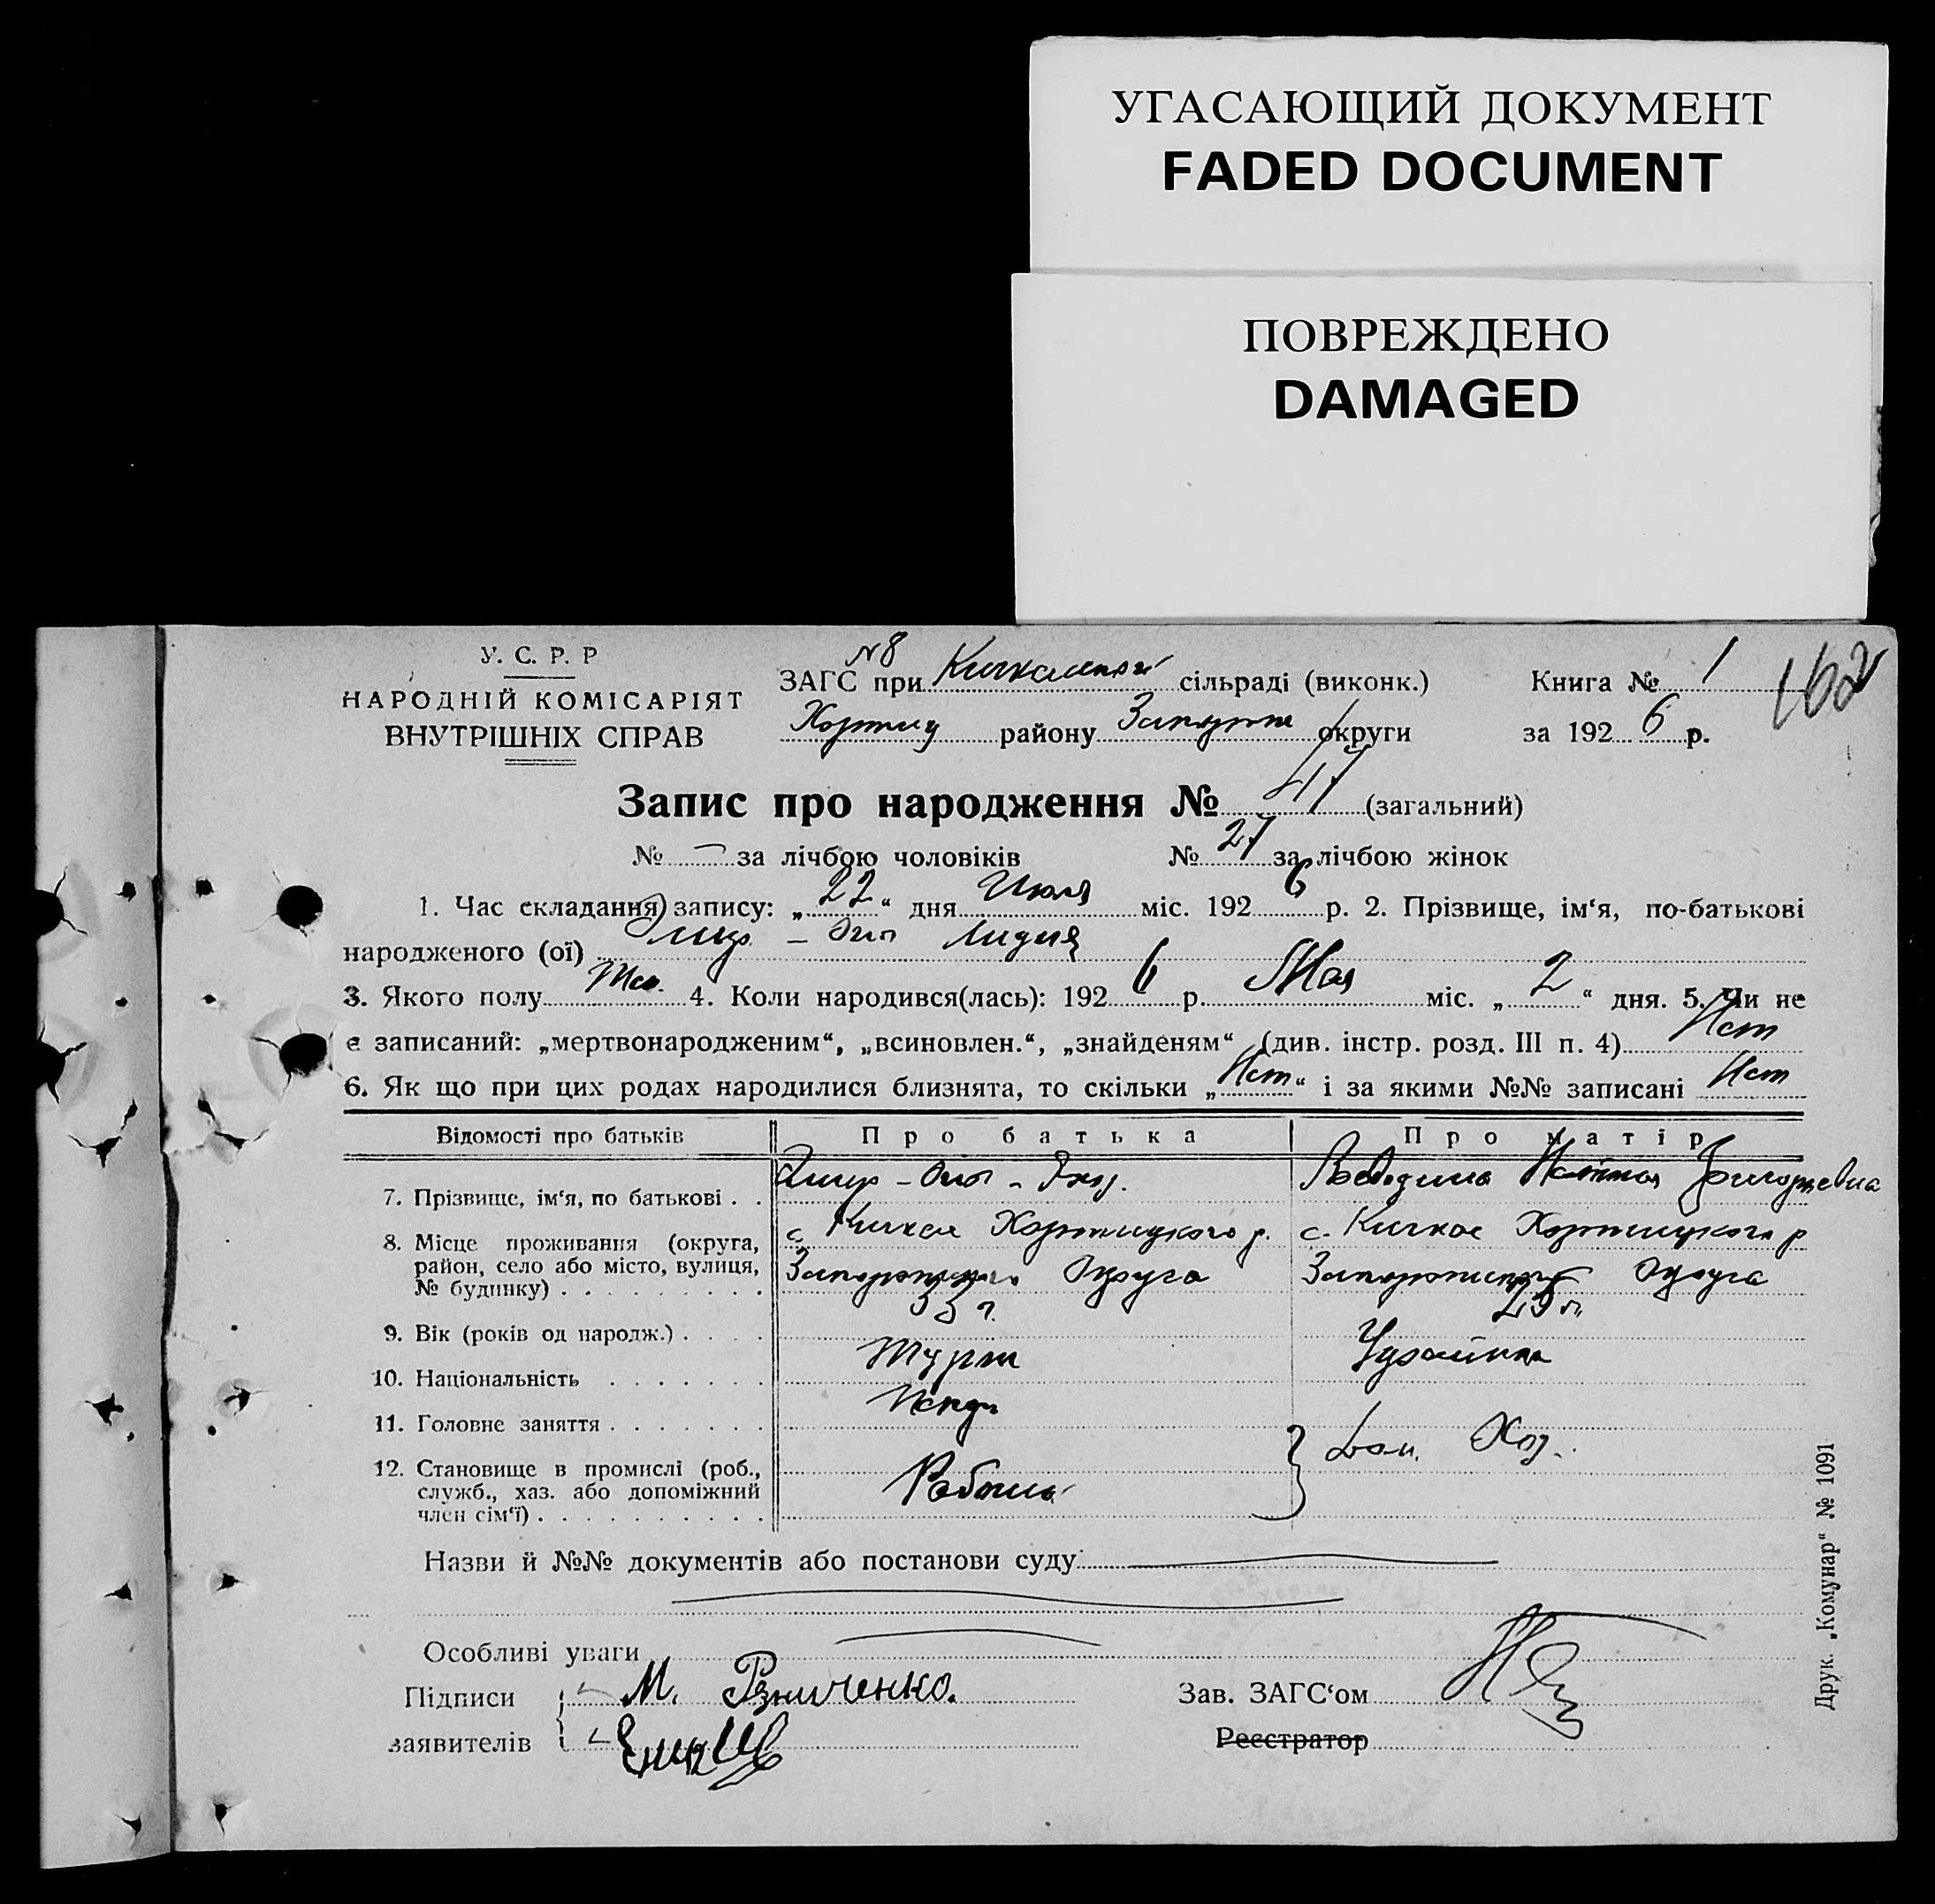 УГАСАЮЩИЙ ДОКУМЕНТ
FADED DOCUMENT
ПОВРЕЖДЕНО
DAMAGED
У. С. Р. Р
НАРОДНІЙ КОМІСАРІЯТ
ВНУТРІШНІХ СПРАВ
N8
ЗАГС при сільраді (виконк.)
Хортиц району Запорож округи
Книга № 1
за 192 6 р.
162
Запис про народження № 47 (загальний)
№ — за лічбою чоловіків № 27 за лічбою жінок
1. Час складання запису: „ 22 “ дня Июля міс. 192 6 р. 2. Прізвище, ім‘я, по-батькові
народженого (ої) Лидия
3. Якого полу Жен. 4. Коли народився(лась): 192 6 р. Мая міс. „ 2 “ дня. 5. Чи не
є записаний: „мертвонародженим“, „всиновлен.“, „знайденям“ (див. інстр. розд. III п. 4) Нет
6. Як що при цих родах народилися близнята, то скільки „ Нет “ і за якими №№ записані Нет
Відомості про батьків Про батька Про матір
7. Прізвище, ім‘я, по батькові . . Григорьевна
8. Місце проживання (округа, с. Кичкас Хортицкого р. с. Кичкас Хортицкого р
район, село або місто, вулиця, Запорожского Округа Запорожского Округа
№ будинку) . . . . . . . . .
9. Вік (років од народж.) . . . . 33 г. 29 л.
10. Національність . . . . . . .
11. Головне заняття . . . . . . . Дом. Хоз.
12. Становище в промислі (роб.,
служб., хаз. або допоміжний Рабочий
член сім‘ї) . . . . . . . . . .
Назви й №№ документів або постанови суду
Особливі уваги
Підписи М. Рзниченко.
заявителів
Зав. ЗАГС‘ом
Реєстратор
Друк. „Комунар“ № 1091